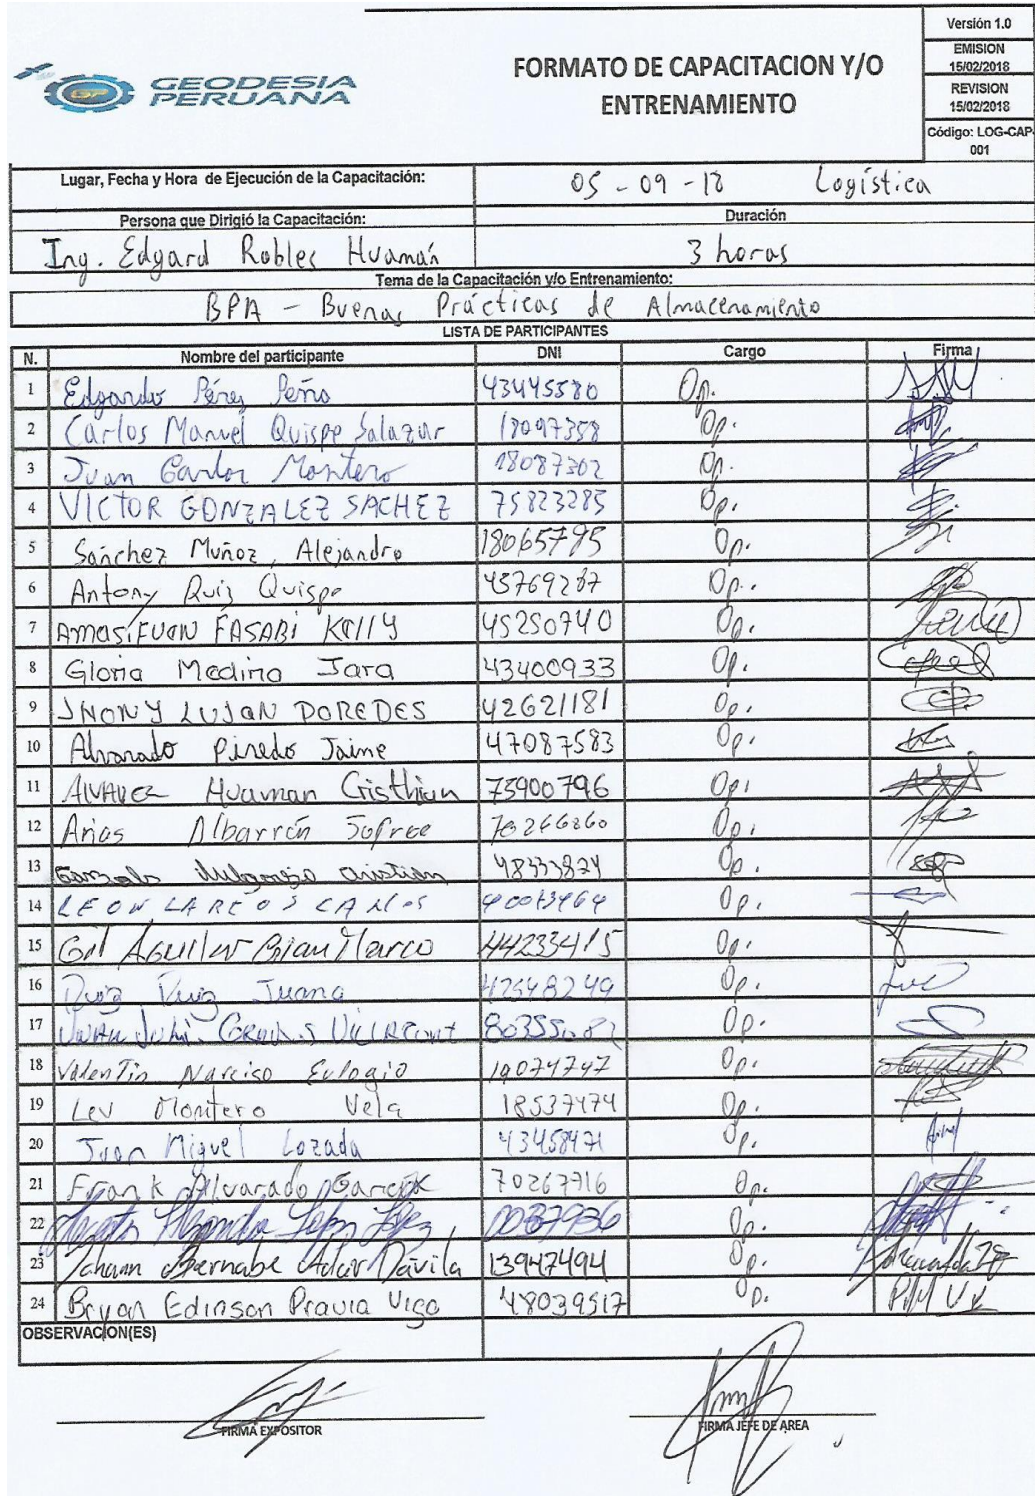 Versión 1.0
EMISION
15/02/2018
REVISION
15/02/2018
Código: LOG-CAP-
001
GEODESIA
PERUANA
GP
FORMATO DE CAPACITACION Y/O
ENTRENAMIENTO
Lugar, Fecha y Hora de Ejecución de la Capacitación: 05-09-18 Logística
Persona que Dirigió la Capacitación: Duración
Ing. Edgard Robles Huamán 3 horas
Tema de la Capacitación y/o Entrenamiento:
BPA - Buenas Prácticas de Almacenamiento
LISTA DE PARTICIPANTES
N. Nombre del participante DNI Cargo Firma
1 Edgardo Pérez Peña 43445580 Op.
2 Carlos Manuel Quispe Salazar 18097358 Op.
3 Juan Carlos Montero 18087302 Op.
4 VICTOR GONZALEZ SACHEZ 75823285 Op.
5 Sánchez Muñoz, Alejandro 18065795 Op.
6 Antony Ruiz Quispe 43769287 Op.
7 AMASIFUAN FASABI KEllY 45250740 Op.
8 Gloria Medina Jara 43400933 Op.
9 JHONY LUJAN POREDES 42621181 Op.
10 Alvarado Pinedo Jaime 47087583 Op.
11 AlVAREZ Huaman Cristhian 73900796 Op.
12 Arias Albarrán 70266860 Op.
13 Gonzalo cristian 48333824 Op.
14 LEON CARLOS Op.
15 Gil AGuilar Gian Marco 44233415 Op.
16 Ruiz Ruiz Juana 42548249 Op.
17 Op.
18 ValenTin Narciso Eulogio 19074747 Op.
19 Lev Montero Vela 18537474 Op.
20 Juan Miguel Lozada 43458471 Op.
21 Frank Alvarado García 70267716 Op.
22 López López Op.
23 Johann Bernabe Dávila 13947494 Op.
24 Bryan Edinson Pravia Vigo 48039517 Op.
OBSERVACION(ES)
FIRMA EXPOSITOR FIRMA JEFE DE AREA